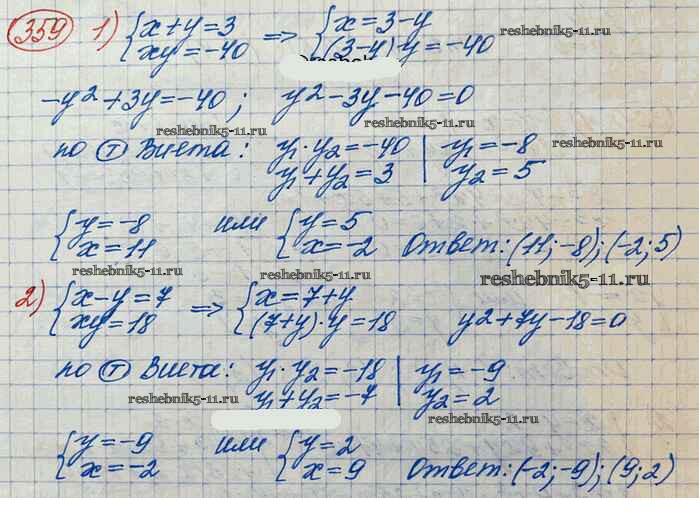 359 1) { x+y=3 => { x=3-y
xy=-40 (3-y)y=-40
reshebnik5-11.ru
-y²+3y=-40; y²-3y-40=0
reshebnik5-11.ru
reshebnik5-11.ru
по Т Виета: y₁·y₂=-40 | y₁=-8
reshebnik5-11.ru
y₁+y₂=3 | y₂=5
{ y=-8 или { y=5
x=11 x=-2 Ответ: (11;-8); (-2;5)
reshebnik5-11.ru
reshebnik5-11.ru
reshebnik5-11.ru
2) { x-y=7 => { x=7+y
xy=18 (7+y)·y=18 y2+7y-18=0
по Т Виета: y₁·y₂=-18 | y₁=-9
y₁+y₂=-7 | y₂=2
reshebnik5-11.ru
reshebnik5-11.ru
{ y=-9 или { y=2
x=-2 x=9 Ответ: (-2;-9); (9;2)